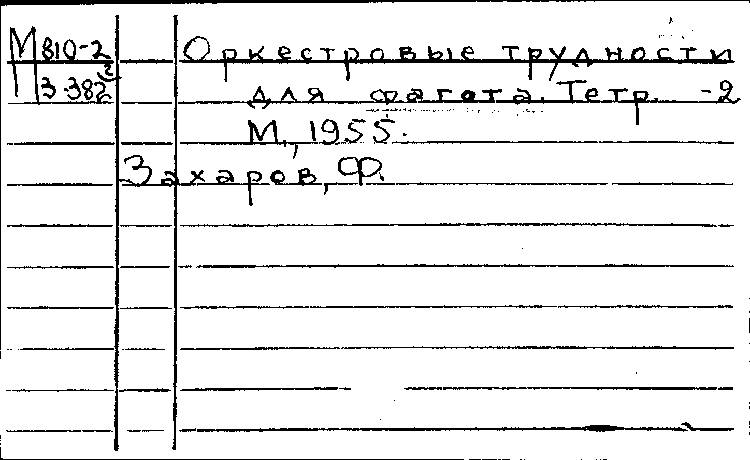 М810-2 Оркестровые трудности
3.382² для фагота. Тетр. -2
М., 1955.
Захаров, Ф.